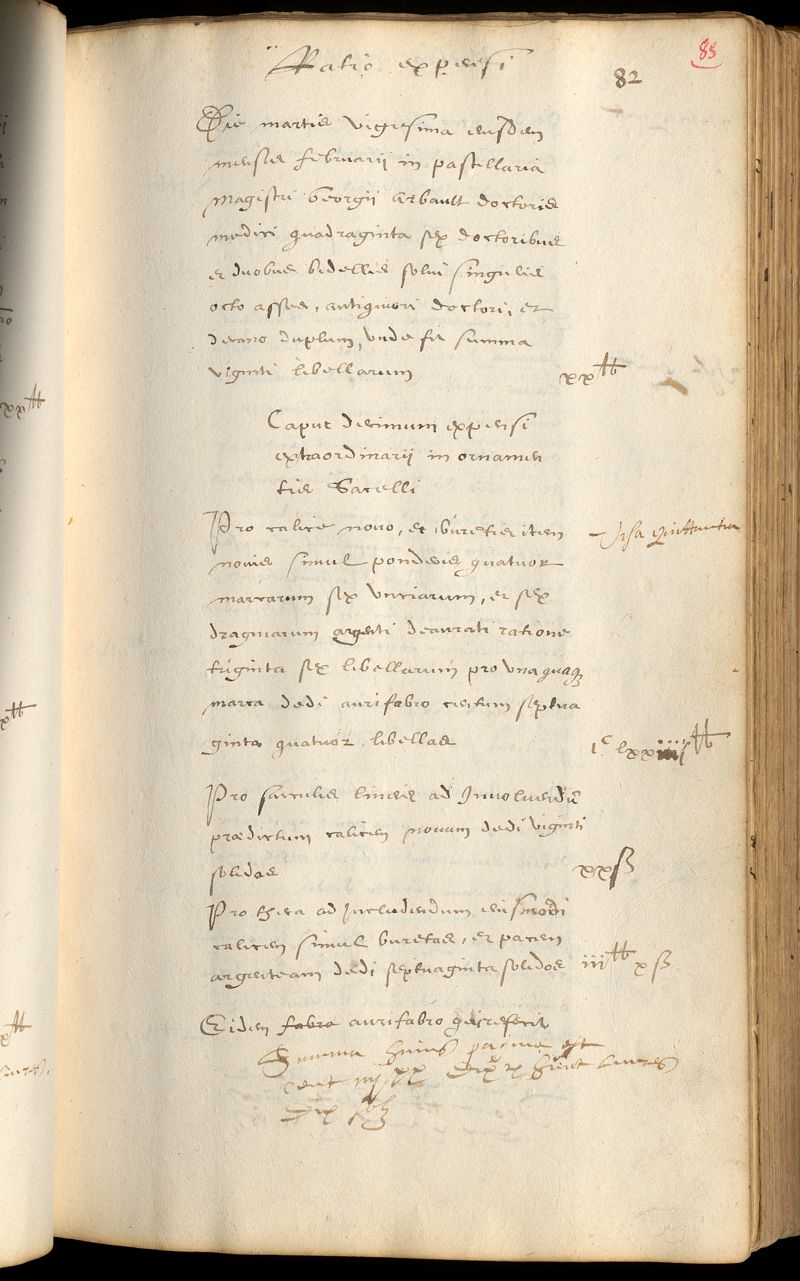 Ratio expensi
82
85
Die martis vigesima eiusdem
mensis februarii in pastillaria
magistri Georgii Arbault doctoris
medici quadraginta sex doctoribus
et duobus bidellis solui singulis
octo asses, antiquiori doctori, et
decano duplum, vnde fit summa
viginti libellarum xx ₶
Caput decimum expensi
extraordinarii in ornamen
tis Sacelli
Pro calice nouo, et buretis item
nouis simul ponderis quatuor
marcarum sex vnciarum, et sex
dragmarum argenti deaurati ratione
triginta sex libellarum pro vnaquaq
marca dedi aurifabro centum septua
ginta quatuor libellas 1c lxxiiii ₶
Pro sacculis lineis ad Inuoluendū
prædictum calicem nouum dedi viginti
solidos xx ß
Pro theca ad Includendum eiusmodi
calicem simul buretas, et pacem
argenteam dedi septuaginta solidos iii ₶ x ß
Eidem fabro aurifabro qui refecit
Summa huius pagine est
cent iiij xx dix huict liures
dix solz